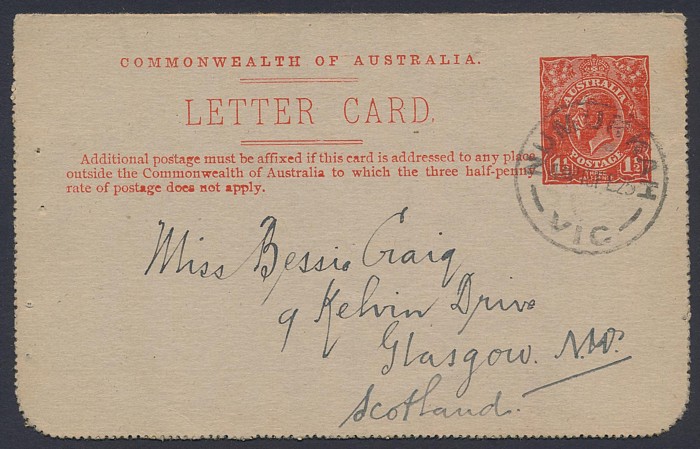 COMMONWEALTH OF AUSTRALIA.
LETTER CARD.
Additional postage must be affixed if this card is addressed to any place
outside the Commonwealth of Australia to which the three half-penny
rate of postage does not apply.
AUSTRALIA
1½ POSTAGE 1½
VIC
Miss Bessie Craig
9 Kelvin Drive
Glasgow. N.W.
Scotland.